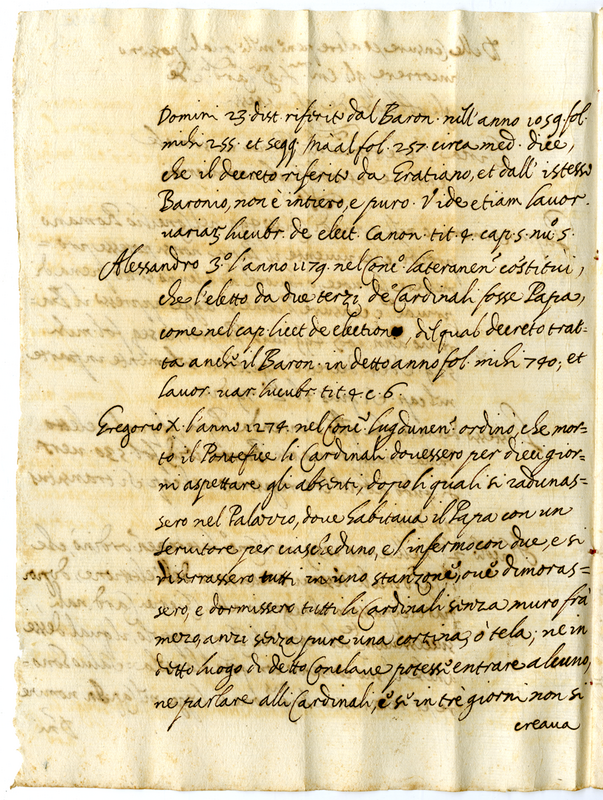 Domini 23 dist. riferito dal Baron. nell'anno 1059. fol.
mihi 255. et seqq. Mà al fol. 257. circa med. dice,
che il decreto riferito da Gratiano, et dall' istesso
Baronio, non è intiero, e puro. Vide etiam Lauor.
variar. lucubr. de elect. Canon. tit. 4. cap. 5. nu. 5.
Alessandro 3.º l'anno 1179. nel Conc.º lateranen. costitui,
che l'eletto da due terzi de Cardinali fosse Papa,
come nel cap. licet de election. del qual decreto trat=
ta anche il Baron. in detto anno fol. mihi 740, et
Lauor. var. lucubr. tit. 4. c. 6
Gregorio X. l'anno 1274. nel Conc.º lugdunen. ordinò, che mor=
to il Pontefice li Cardinali douessero per dieci gior=
ni aspettare gli absenti, dopo li quali si radunas=
sero nel Palazzo, doue habitaua il Papa con un
seruitore per ciascheduno, e l'infermo con due, e si
riserrassero tutti in uno stanzone, oue dimoras=
sero, e dormissero tutti li Cardinali senza muro frà
mezo, anzi senza pure una cortina, ò tela; ne in
detto luogo di detto Conclaue potesse entrare alcuno,
ne parlare alli Cardinali, e se in tre giorni non si
creaua